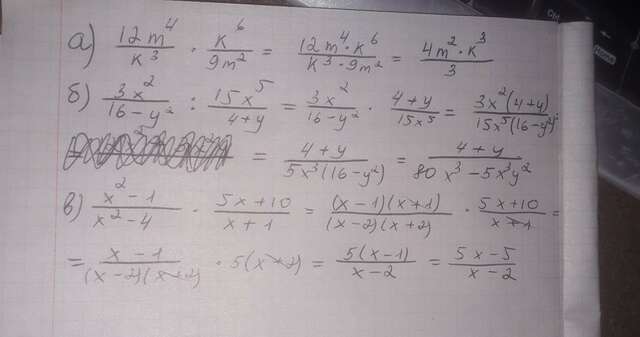 а) 12m⁴/k³ · k⁶/9m² = 12m⁴·k⁶/k³·9m² = 4m²·k³/3
б) 3x²/16-y² : 15x⁵/4+y = 3x²/16-y² · 4+y/15x⁵ = 3x²(4+y)/15x⁵(16-y²) =
= 4+y/5x³(16-y²) = 4+y/80x³-5x³y²
в) x²-1/x²-4 · 5x+10/x+1 = (x-1)(x+1)/(x-2)(x+2) · 5x+10/x+1 =
= x-1/(x-2)(x+2) · 5(x+2) = 5(x-1)/x-2 = 5x-5/x-2